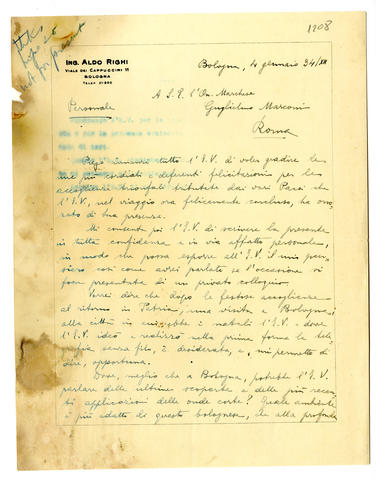 1908
not for present
ING. ALDO RIGHI
VIALE DEI CAPPUCCINI 11
BOLOGNA
Bologna, 4 gennaio 34/XII
A S. E. l'On. Marchese
Guglielmo Marconi
Roma
Personale
Prego innanzi tutto l'E.V. di voler gradire le
mie più cordiali e deferenti felicitazioni per le
accoglienze trionfali tributate dai vari Paesi che
l'E.V., nel viaggio ora felicemente concluso, ha ono-
rato di Sua presenza.
Mi consenta poi l'E.V. di scrivere la presente
in tutta confidenza e in via affatto personale,
in modo che possa esporre all'E.V. il mio pen-
siero così come avrei parlato se l'occasione si
fosse presentata di un privato colloquio.
Vorrei dire che dopo le festose accoglienze
al ritorno in Patria, una visita a Bologna,
alla città in cui ebbe i natali l'E.V. e dove
l'E.V. ideò e realizzò nella prima forma la tele-
grafia senza fili, è desiderata, e, mi permetto di
dire, opportuna.
Dove, meglio che a Bologna, potrebbe l'E.V.
parlare delle ultime scoperte e delle più recen-
ti applicazioni delle onde corte? Quale ambiente
è più adatto di questo bolognese, che alla profonda